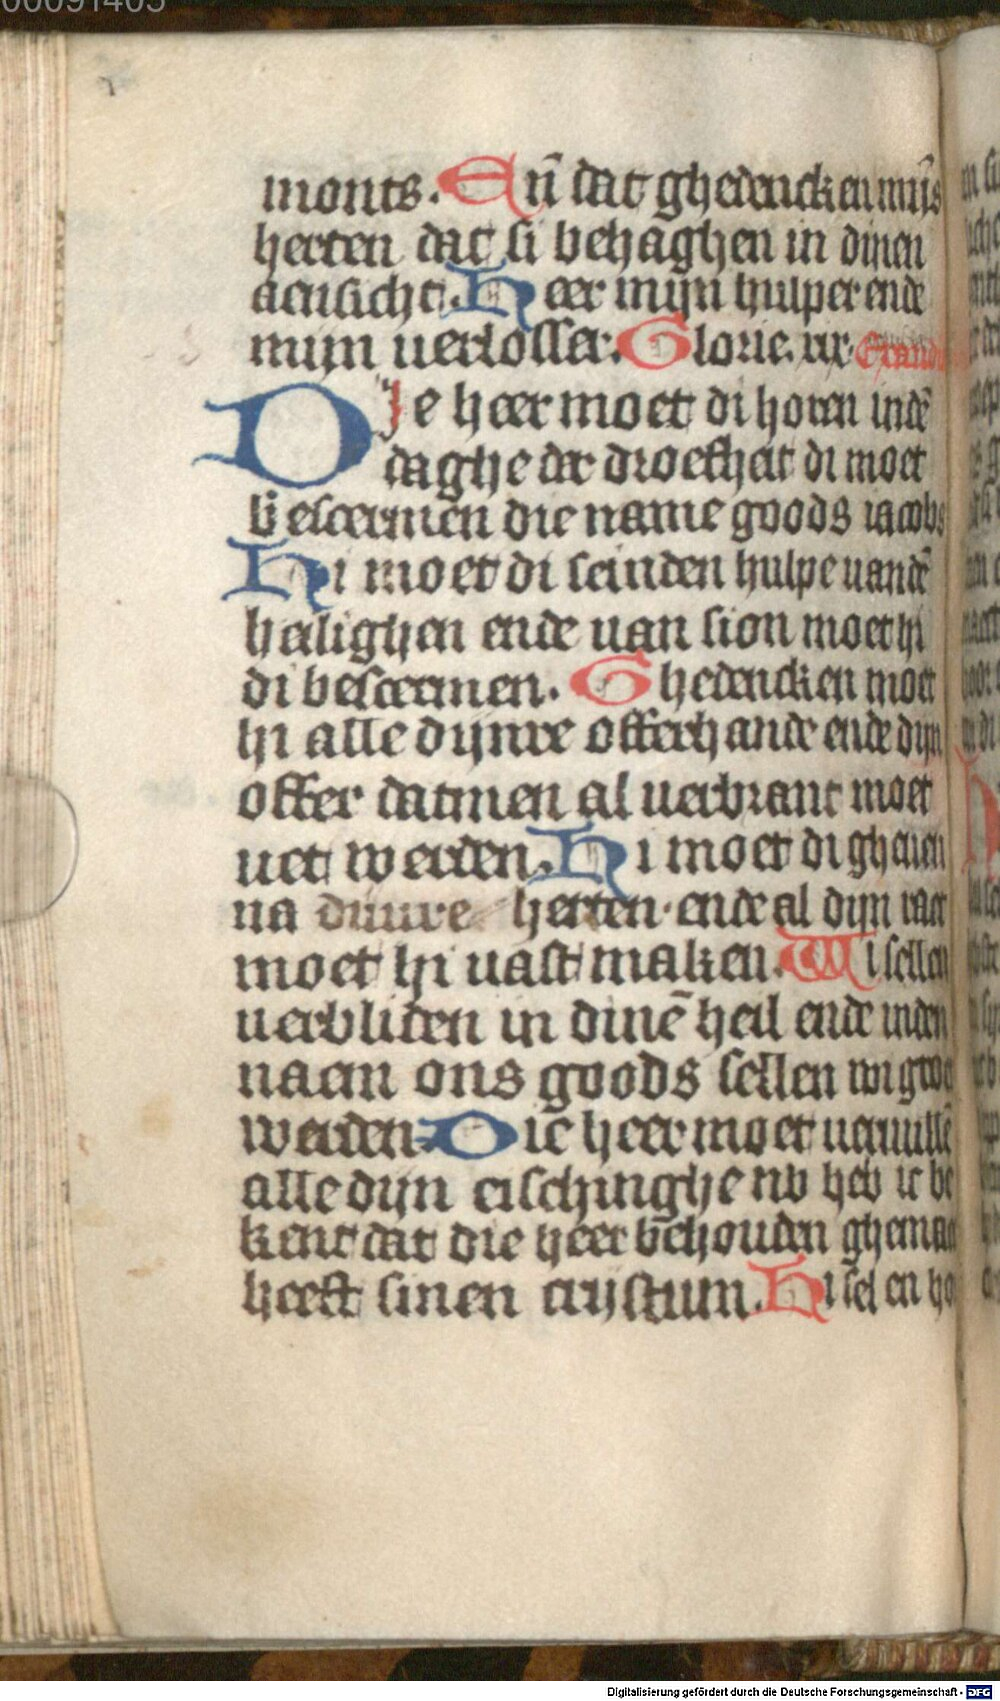 00091405
monts. En̄ dat ghedencken mijns
herten dat si behaghen in dinen
aensicht. Heer mijn hulper ende
mijn verlosser. Glorie. xix.
Die heer moet di horen indē
daghe der droefheit di moet
bescermen die name goods iacobs
Hi moet di seinden hulpe uandē
heilighen ende uan sion moet hi
di bescermen. Ghedencken moet
hi alle dijnre offerhande ende dijn
offer datmen al uerbrant moet
uet werden. Hi moet di gheuen
na dinre herten ende al dijn raet
moet hi uast maken. Wi sellen
uerbliden in dinē heil ende inden
naem ons goods sellen wi groet
werden Die heer moet ueruullē
alle dijn eischinghe nv heb ic be
kent dat die heer behouden ghemaect
heeft sinen cristum. Hi sel en ho
Digitalisierung gefördert durch die Deutsche Forschungsgemeinschaft - DFG